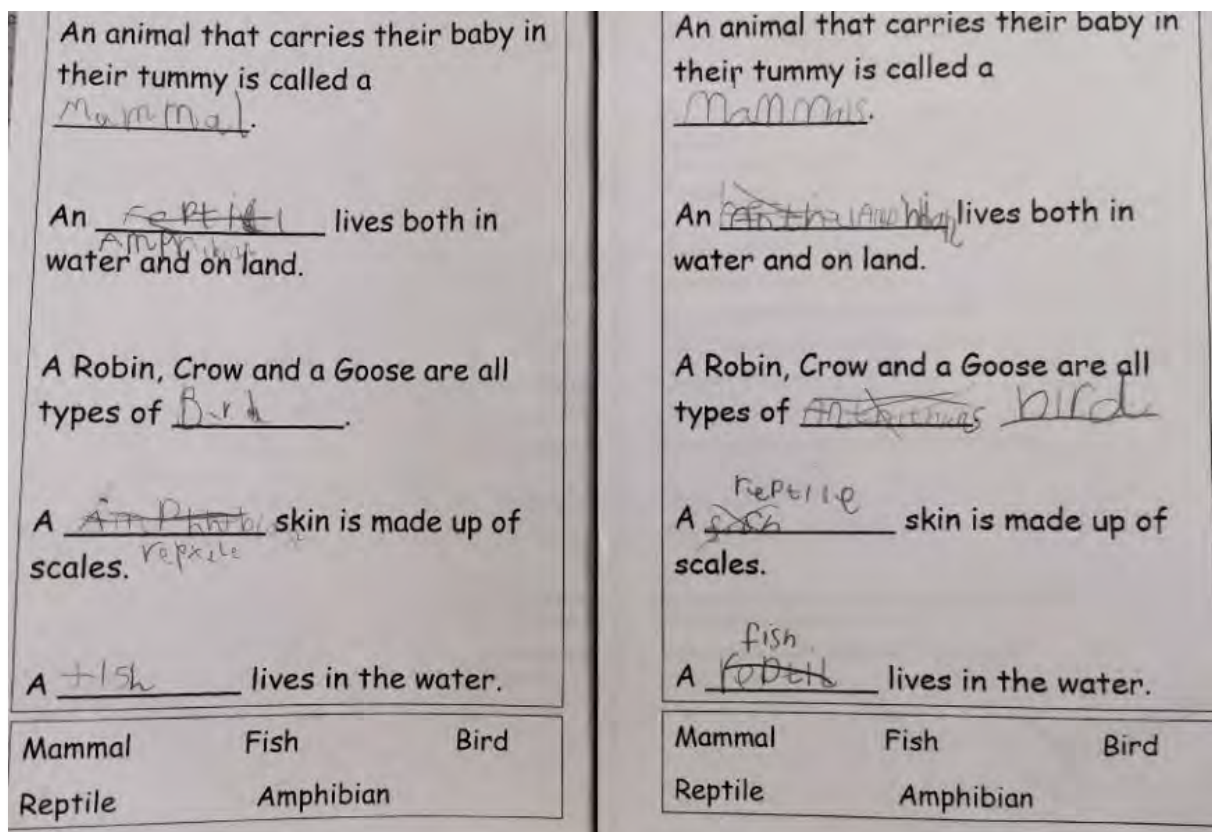 An animal that carries their baby in
their tummy is called a
Mammal.
An reptil lives both in
water and on land.
A Robin, Crow and a Goose are all
types of Bird.
A skin is made up of
scales. repxile
A fish lives in the water.
Mammal Fish Bird
Reptile Amphibian
An animal that carries their baby in
their tummy is called a
Mammals.
An lives both in
water and on land.
A Robin, Crow and a Goose are all
types of bird
reptile
A skin is made up of
scales.
fish
A lives in the water.
Mammal Fish Bird
Reptile Amphibian